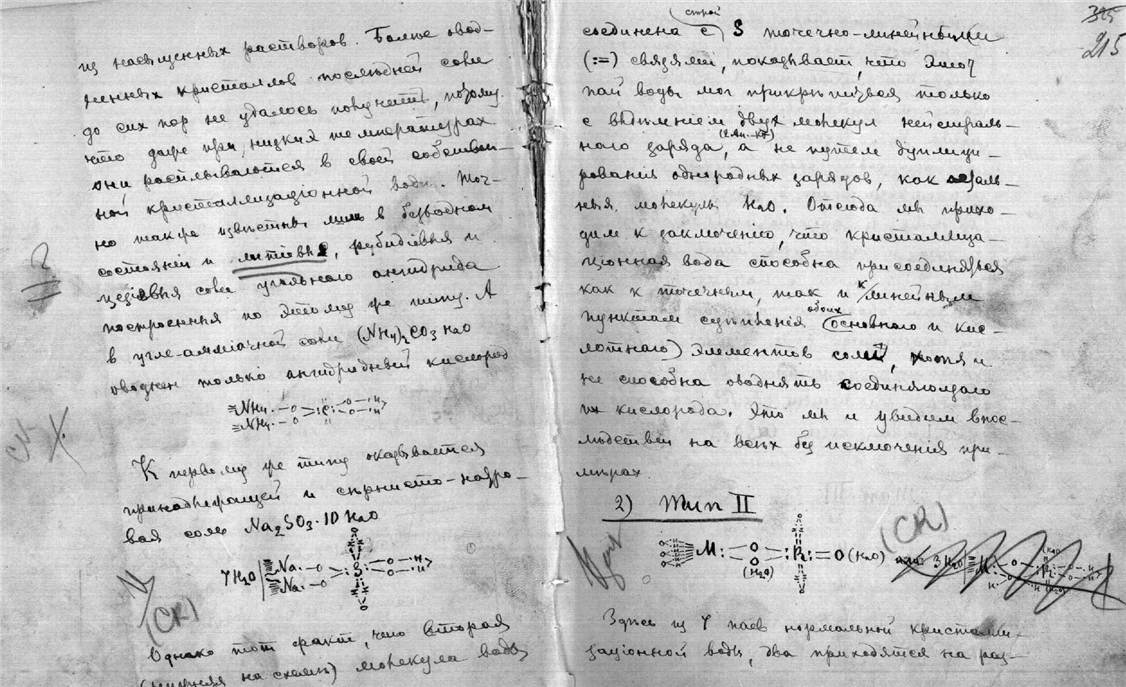 изъ насыщенныхъ растворовъ. Болѣе овод-
ненныхъ кристалловъ послѣдней соли
до сихъ поръ не удалось получить, потому
что даже при низкихъ температурахъ
они расплываются въ своей собствен-
ной кристаллизаціонной водѣ. Точ-
но также извѣстны лишь въ безводномъ
состояніи и литіевыя, рубидіевыя и
цезіевыя соли угольнаго ангидрида
построенныя по этому же типу. А
въ угле-амміачной соли (NH4)2CO3 H2O
оводненъ только ангидридный кислородъ
NH4.–O
NH4.–O
Къ первому же типу оказывается
принадлежащей и сѣрнисто-натро-
вая соль Na2SO3·10H2O
7H2O Na.–O
Na.–O
(СК)
Однако тотъ фактъ, что вторая
(нижняя на схемѣ) молекула воды
215
соединена съ S точечно-линейными
(:=) связями, показываетъ, что этотъ
пай воды могъ прикрѣпиться только
съ выдѣленіемъ двухъ молекулъ нейтраль-
наго заряда, а не путемъ дуплици-
рованія однородныхъ зарядовъ, какъ
ныя молекулы H2O. Отсюда мы прихо-
димъ къ заключенію, что кристаллиза-
ціонная вода способна присоединяться
какъ къ точечнымъ, такъ и къ линейнымъ
пунктамъ сцѣпленія обоихъ (основного и кис-
лотнаго) элементовъ солей, хотя и
не способна оводнять соединяющаго
ихъ кислорода. Это мы и увидимъ впос-
лѣдствіи на всѣхъ безъ исключенія при-
мѣрахъ
2) Типъ II
(СК)
M: O O (H2O) :R: =O (H2O) или 3H2O
Здѣсь изъ 7 паевъ нормальной кристалли-
заціонной воды, два приходятся на раз-